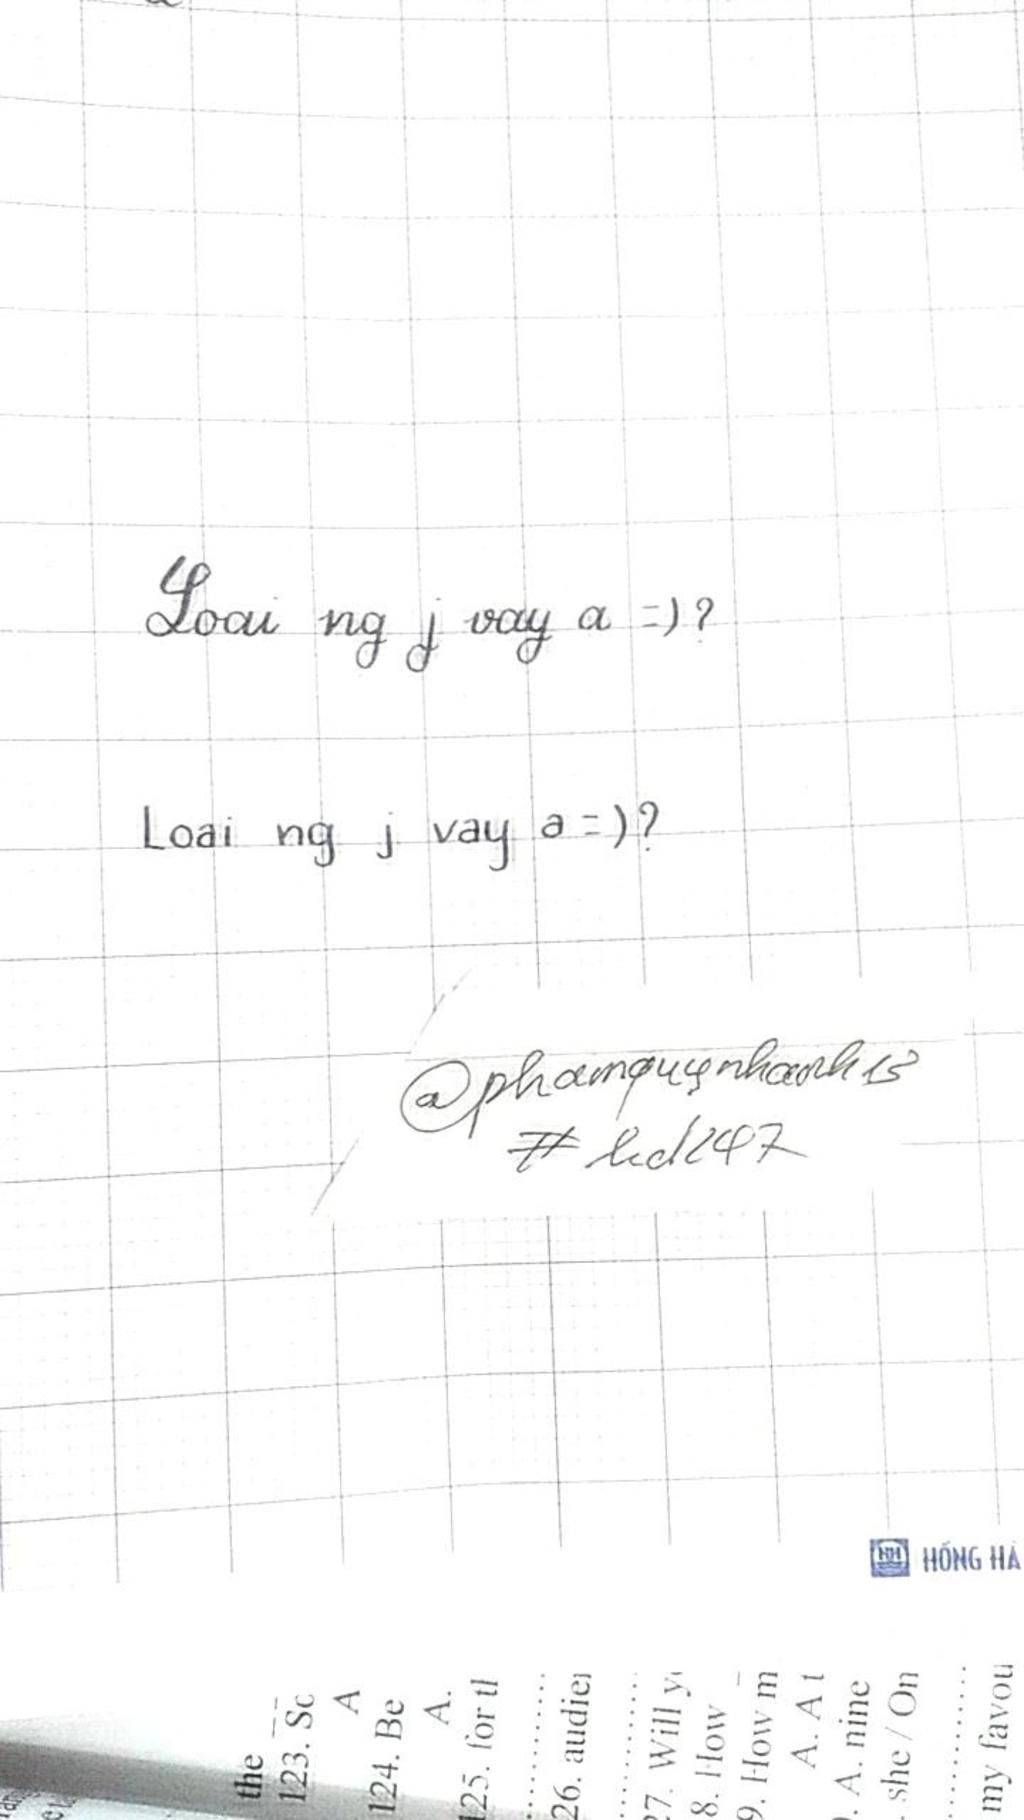 Loai ng j vay a =)?
Loai ng j vay a =)?
@phamquynhanh13
#hd247
HỒNG HÀ
the
123. Sc
A
124. Be
A.
125. for th
26. audien
27. Will y
8. How
9. How m
A. A t
. A. nine
. she / On
my favou